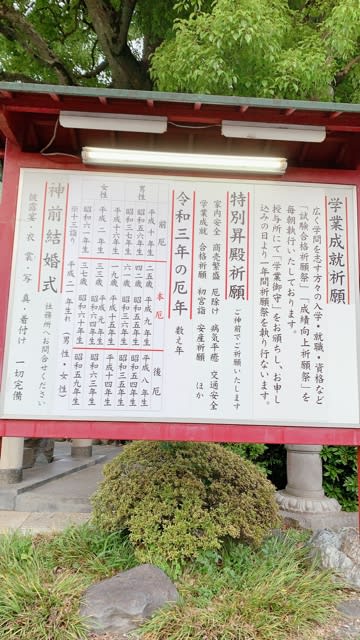 学業成就祈願
広く学問を志す方々の入学・就職・資格など
「試験合格祈願祭」「成績向上祈願祭」を
毎朝執行いたしております。
授与所にて「学業御守」をお頒ちし、お申し
込みの日より一年間祈願祭を執り行ないます。
特別昇殿祈願 ご神前でご祈願いたします
家内安全 商売繁盛 厄除け 病気平癒 交通安全
学業成就 合格祈願 初宮詣 安産祈願 ほか
令和三年の厄年 数え年
前厄 本厄 後厄
男性 平成十年生 二五歳 平成九年生 平成八年生
昭和五六年生 四二歳 昭和五五年生 昭和五四年生
昭和三七年生 六一歳 昭和三六年生 昭和三五年生
女性 平成十六年生 十九歳 平成十五年生 平成十四年生
平成二年生 三三歳 平成元年生 昭和六三年生
昭和六一年生 三七歳 昭和六〇年生 昭和五九年生
※十三詣り 平成二一年生れ（男性・女性）
神前結婚式 社務所へお問合せください
披露宴・衣裳・写真・着付け 一切完備